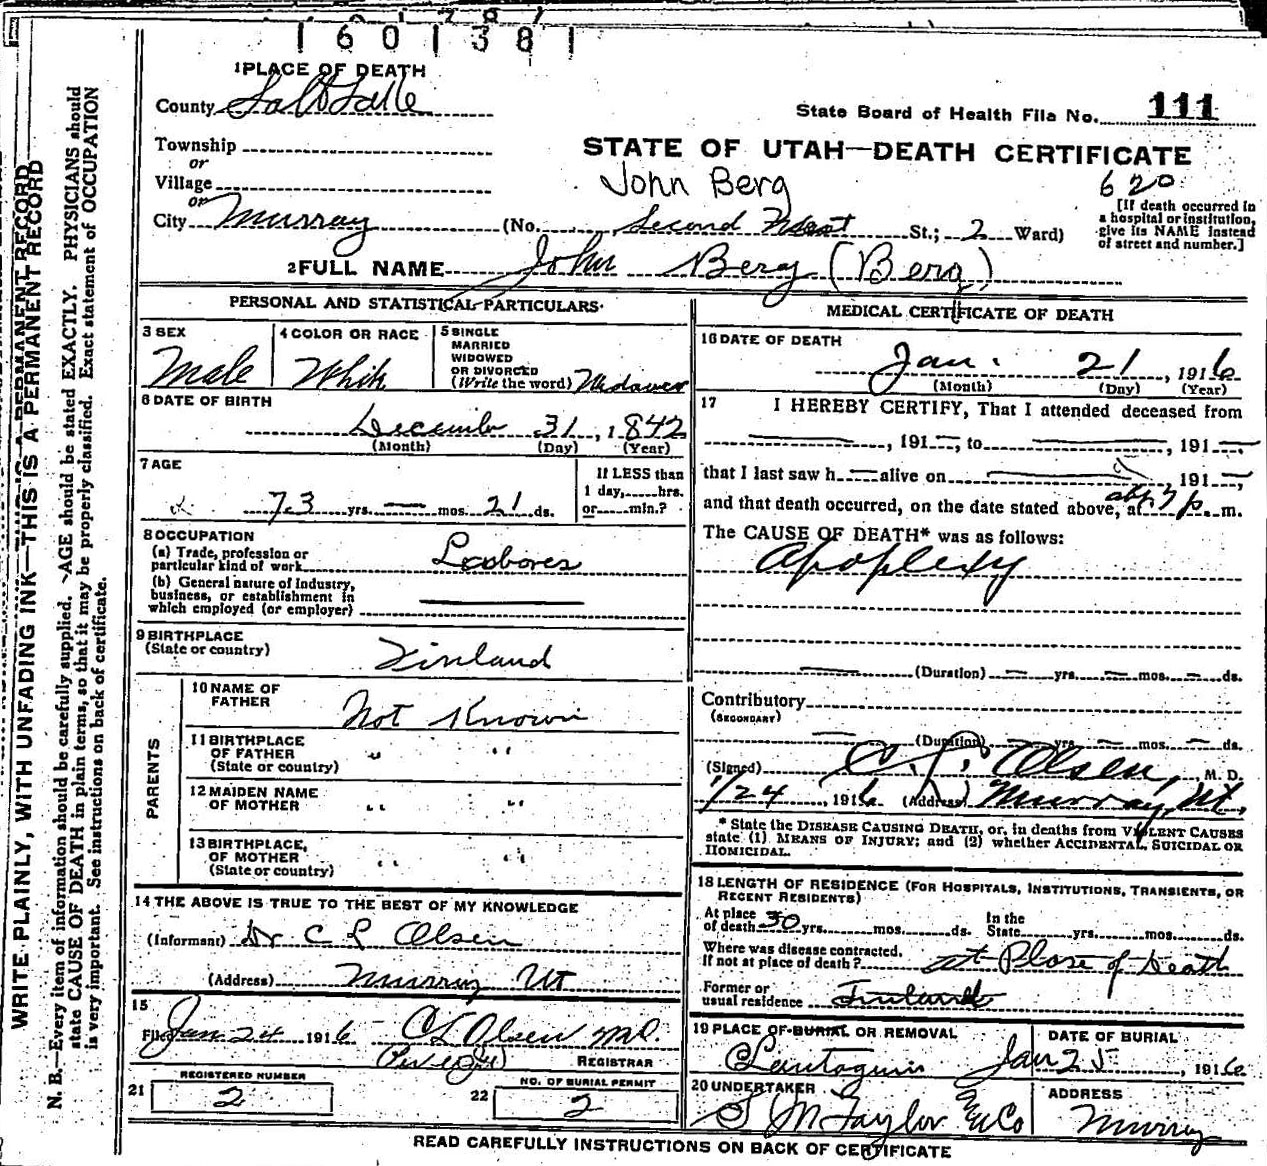 1601381
1 PLACE OF DEATH
County Salt Lake
State Board of Health File No. 111
Township
or
STATE OF UTAH—DEATH CERTIFICATE
Village
or
John Berg
620
City Murray (No. Second West St.; 2 Ward)
[If death occurred in
a hospital or institution,
give its NAME instead
of street and number.]
2 FULL NAME John Berg (Berg)
PERSONAL AND STATISTICAL PARTICULARS
3 SEX
Male
4 COLOR OR RACE
White
5 SINGLE
MARRIED
WIDOWED
OR DIVORCED
(Write the word) Widower
6 DATE OF BIRTH
December 31, 1842
(Month) (Day) (Year)
7 AGE
73 yrs. — mos. 21 ds.
If LESS than
1 day, hrs.
or min.?
8 OCCUPATION
(a) Trade, profession or
particular kind of work Laborer
(b) General nature of Industry,
business, or establishment in
which employed (or employer)
9 BIRTHPLACE
(State or country) Finland
PARENTS
10 NAME OF
FATHER Not Known
11 BIRTHPLACE
OF FATHER " "
(State or country)
12 MAIDEN NAME
OF MOTHER " "
13 BIRTHPLACE,
OF MOTHER " "
(State or country)
14 THE ABOVE IS TRUE TO THE BEST OF MY KNOWLEDGE
(Informant) Dr C L Olsen
(Address) Murray Ut
15
Filed Jan 24 1916 C L Olsen M.D.
REGISTRAR
21 REGISTERED NUMBER
2
22 NO. OF BURIAL PERMIT
2
MEDICAL CERTIFICATE OF DEATH
16 DATE OF DEATH
Jan. 21, 1916
(Month) (Day) (Year)
17 I HEREBY CERTIFY, That I attended deceased from
—, 191—, to —, 191—,
that I last saw h — alive on —, 191—,
and that death occurred, on the date stated above, at abt 7 p. m.
The CAUSE OF DEATH* was as follows:
Apoplexy
— (Duration) — yrs. — mos. — ds.
Contributory
(SECONDARY)
— (Duration) — yrs. — mos. — ds.
(Signed) C. L. Olsen, M. D.
1/24, 1916 (Address) Murray, Ut.
* State the DISEASE CAUSING DEATH, or, in deaths from VIOLENT CAUSES
state (1) MEANS OF INJURY; and (2) whether ACCIDENTAL, SUICIDAL OR
HOMICIDAL.
18 LENGTH OF RESIDENCE (FOR HOSPITALS, INSTITUTIONS, TRANSIENTS, OR
RECENT RESIDENTS)
At place
of death 30 yrs. mos. ds.
In the
State yrs. mos. ds.
Where was disease contracted,
if not at place of death? at Place of Death
Former or
usual residence Finland
19 PLACE OF BURIAL OR REMOVAL
DATE OF BURIAL
Jan 25, 1916
20 UNDERTAKER
S M Taylor & Co
ADDRESS
Murray
READ CAREFULLY INSTRUCTIONS ON BACK OF CERTIFICATE
WRITE PLAINLY, WITH UNFADING INK—THIS IS A PERMANENT RECORD
N. B.—Every item of information should be carefully supplied. AGE should be stated EXACTLY. PHYSICIANS should
state CAUSE OF DEATH in plain terms, so that it may be properly classified. Exact statement of OCCUPATION
is very important. See instructions on back of certificate.